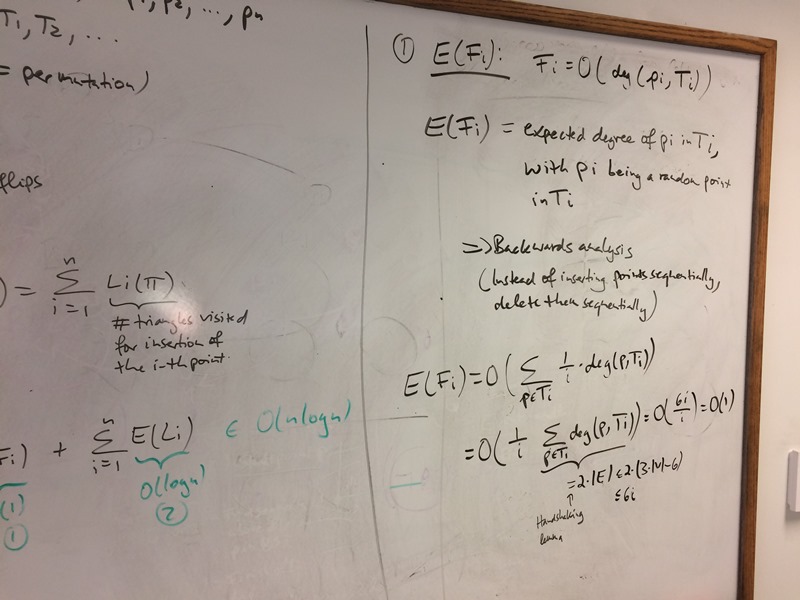 p1, p2, ..., pn
T1, T2, ...
= permutation)
flips
) = Σ_{i=1}^{n} Li(π)
# triangles visited
for insertion of
the i-th point.
Fi) + Σ_{i=1}^{n} E(Li) ∈ O(nlogn)
(1) O(logn)
① ②
① E(Fi): Fi = O(deg(pi, Ti))
E(Fi) = expected degree of pi in Ti,
with pi being a random point
in Ti
=> Backwards analysis
(Instead of inserting points sequentially,
delete them sequentially)
E(Fi) = O( Σ_{p∈Ti} 1/i · deg(p, Ti))
= O( 1/i Σ_{p∈Ti} deg(p, Ti)) = O(6i/i) = O(1)
= 2·|E| ≤ 2·(3·|V|-6)
≤ 6i
Handshaking
lemma